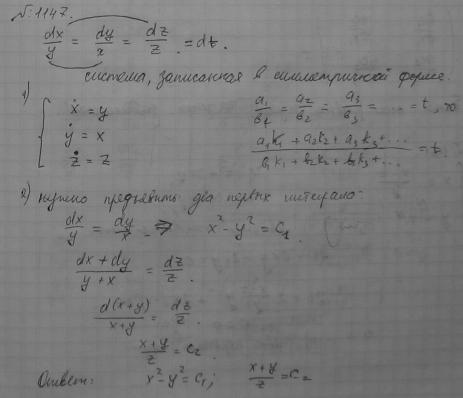 №1147.
dx/y = dy/x = dz/z = dt.
система, записанная в симметричной форме.
1) { ẋ = y
ẏ = x
ż = z
a₁/b₁ = a₂/b₂ = a₃/b₃ = ... = t, то
(a₁k₁ + a₂k₂ + a₃k₃ + ...)/(b₁k₁ + b₂k₂ + b₃k₃ + ...) = t.
2) нужно предъявить два первых интеграла.
dx/y = dy/x ⇒ x² - y² = C₁.
(dx + dy)/(y + x) = dz/z.
d(x+y)/(x+y) = dz/z.
(x+y)/z = C₂.
Ответ: x² - y² = C₁; (x+y)/z = C₂